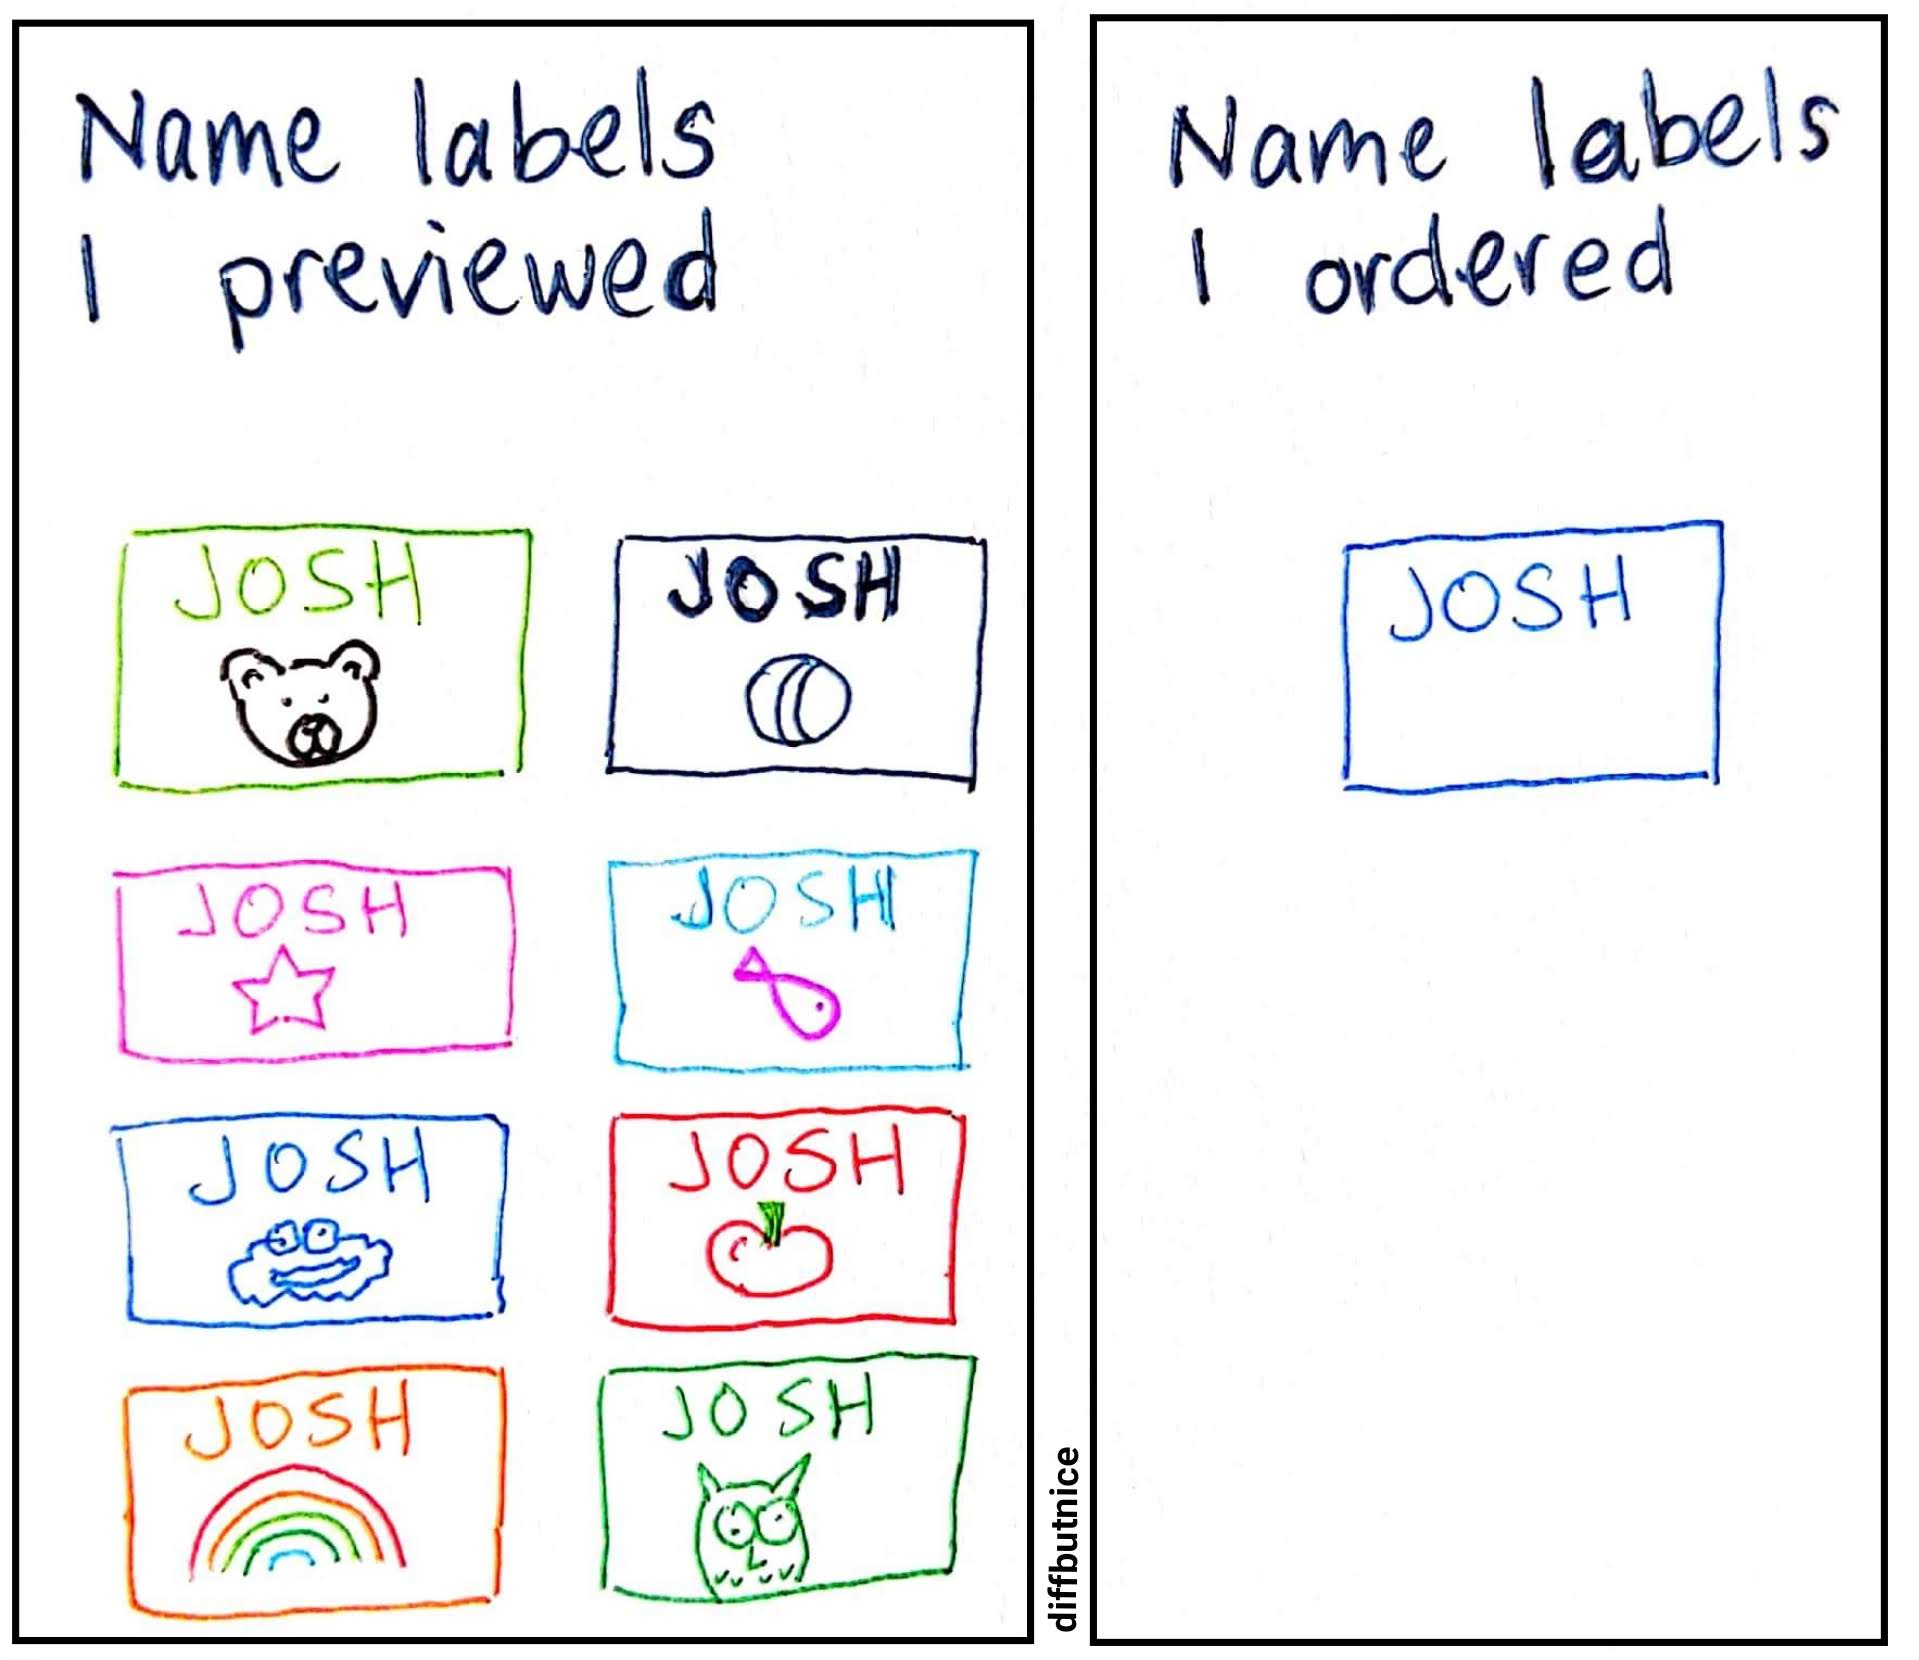 Name labels
I previewed
JOSH
JOSH
JOSH
JOSH
JOSH
JOSH
JOSH
JOSH
diffbutnice
Name labels
I ordered
JOSH